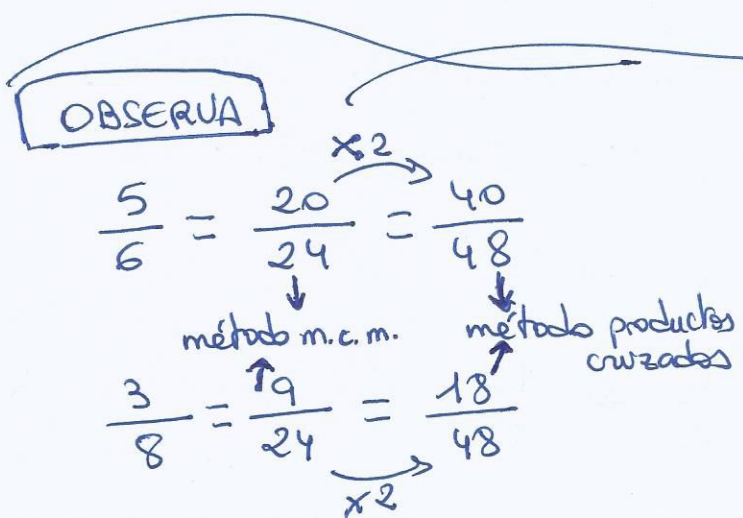 OBSERVA
x2
5/6 = 20/24 = 40/48
método m.c.m. método productos
cruzados
3/8 = 9/24 = 18/48
x2